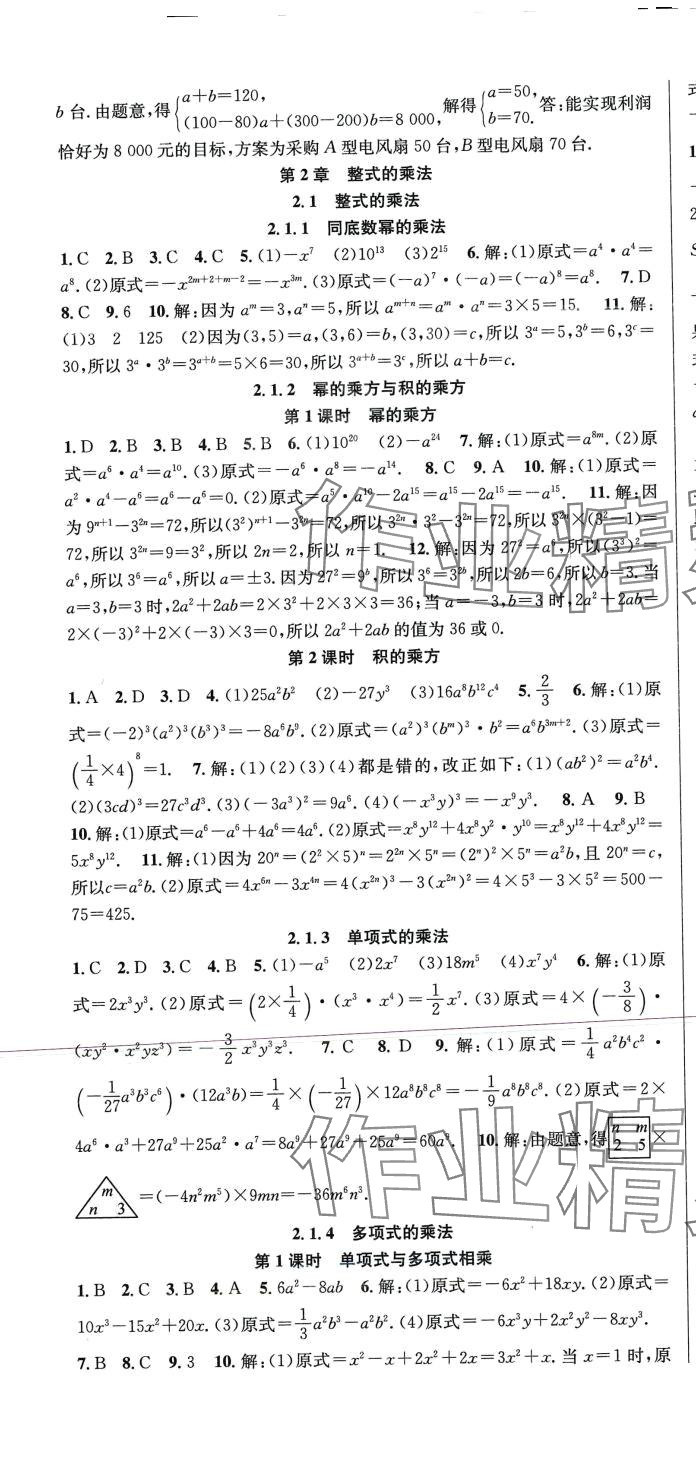 b 台.由题意,得{a+b=120, (100-80)a+(300-200)b=8 000, 解得{a=50, b=70. 答:能实现利润
恰好为 8 000 元的目标,方案为采购 A 型电风扇 50 台,B 型电风扇 70 台.
第 2 章 整式的乘法
2.1 整式的乘法
2.1.1 同底数幂的乘法
1.C 2.B 3.C 4.C 5.(1)-x⁷ (2)10¹³ (3)2¹⁵ 6.解:(1)原式=a⁴·a⁴=
a⁸.(2)原式=-x^{2m+2+m-2}=-x^{3m}.(3)原式=(-a)⁷·(-a)=(-a)⁸=a⁸. 7.D
8.C 9.6 10.解:因为 a^m=3,a^n=5,所以 a^{m+n}=a^m·a^n=3×5=15. 11.解:
(1)3 2 125 (2)因为(3,5)=a,(3,6)=b,(3,30)=c,所以 3^a=5,3^b=6,3^c=
30,所以 3^a·3^b=3^{a+b}=5×6=30,所以 3^{a+b}=3^c,所以 a+b=c.
2.1.2 幂的乘方与积的乘方
第 1 课时 幂的乘方
1.D 2.B 3.B 4.B 5.B 6.(1)10²⁰ (2)-a²⁴ 7.解:(1)原式=a^{8m}.(2)原
式=a⁶·a⁴=a¹⁰.(3)原式=-a⁶·a⁸=-a¹⁴. 8.C 9.A 10.解:(1)原式=
a²·a⁴-a⁶=a⁶-a⁶=0.(2)原式=a⁵·a¹⁰-2a¹⁵=a¹⁵-2a¹⁵=-a¹⁵. 11.解:因
为 9^{n+1}-3^{2n}=72,所以(3²)^{n+1}-3^{2n}=72,所以 3^{2n}·3²-3^{2n}=72,所以 3^{2n}×(3²-1)=
72,所以 3^{2n}=9=3²,所以 2n=2,所以 n=1. 12.解:因为 27²=a⁶,所以(3³)²=
a⁶,所以 3⁶=a⁶,所以 a=±3.因为27²=9^b,所以 3⁶=3^{2b},所以2b=6,所以b=3.当
a=3,b=3 时,2a²+2ab=2×3²+2×3×3=36;当 a=-3,b=3 时,2a²+2ab=
2×(-3)²+2×(-3)×3=0,所以 2a²+2ab 的值为 36 或0.
第 2 课时 积的乘方
1.A 2.D 3.D 4.(1)25a²b² (2)-27y³ (3)16a⁸b¹²c⁴ 5.2/3 6.解:(1)原
式=(-2)³(a²)³(b³)³=-8a⁶b⁹.(2)原式=(a²)³(b^m)³·b²=a⁶b^{3m+2}.(3)原式=
(1/4×4)⁸=1. 7.解:(1)(2)(3)(4)都是错的,改正如下:(1)(ab²)²=a²b⁴.
(2)(3cd)³=27c³d³.(3)(-3a³)²=9a⁶.(4)(-x³y)³=-x⁹y³. 8.A 9.B
10.解:(1)原式=a⁶-a⁶+4a⁶=4a⁶.(2)原式=x⁸y¹²+4x⁸y²·y¹⁰=x⁸y¹²+4x⁸y¹²=
5x⁸y¹². 11.解:(1)因为 20^n=(2²×5)^n=2^{2n}×5^n=(2^n)²×5^n=a²b,且 20^n=c,
所以c=a²b.(2)原式=4x^{6n}-3x^{4n}=4(x^{2n})³-3(x^{2n})²=4×5³-3×5²=500-
75=425.
2.1.3 单项式的乘法
1.C 2.D 3.C 4.B 5.(1)-a⁵ (2)2x⁷ (3)18m⁵ (4)x⁷y⁴ 6.解:(1)原
式=2x³y³.(2)原式=(2×1/4)·(x³·x⁴)=1/2 x⁷.(3)原式=4×(-3/8)·
(xy²·x²yz³)=-3/2 x³y³z³. 7.C 8.D 9.解:(1)原式=1/4 a²b⁴c²·
(-1/27 a³b³c⁶)·(12a³b)=1/4×(-1/27)×12a⁸b⁸c⁸=-1/9 a⁸b⁸c⁸.(2)原式=2×
4a⁶·a³+27a⁹+25a²·a⁷=8a⁹+27a⁹+25a⁹=60a⁹. 10.解:由题意,得 n m 2 5 ×
m n 3 =(-4n²m⁵)×9mn=-36m⁶n³.
2.1.4 多项式的乘法
第 1 课时 单项式与多项式相乘
1.B 2.C 3.B 4.A 5.6a²-8ab 6.解:(1)原式=-6x²+18xy.(2)原式=
10x³-15x²+20x.(3)原式=1/3 a²b³-a²b².(4)原式=-6x³y+2x²y²-8xy³.
7.B 8.C 9.3 10.解:(1)原式=x²-x+2x²+2x=3x²+x.当 x=1 时,原
作业精
作业精